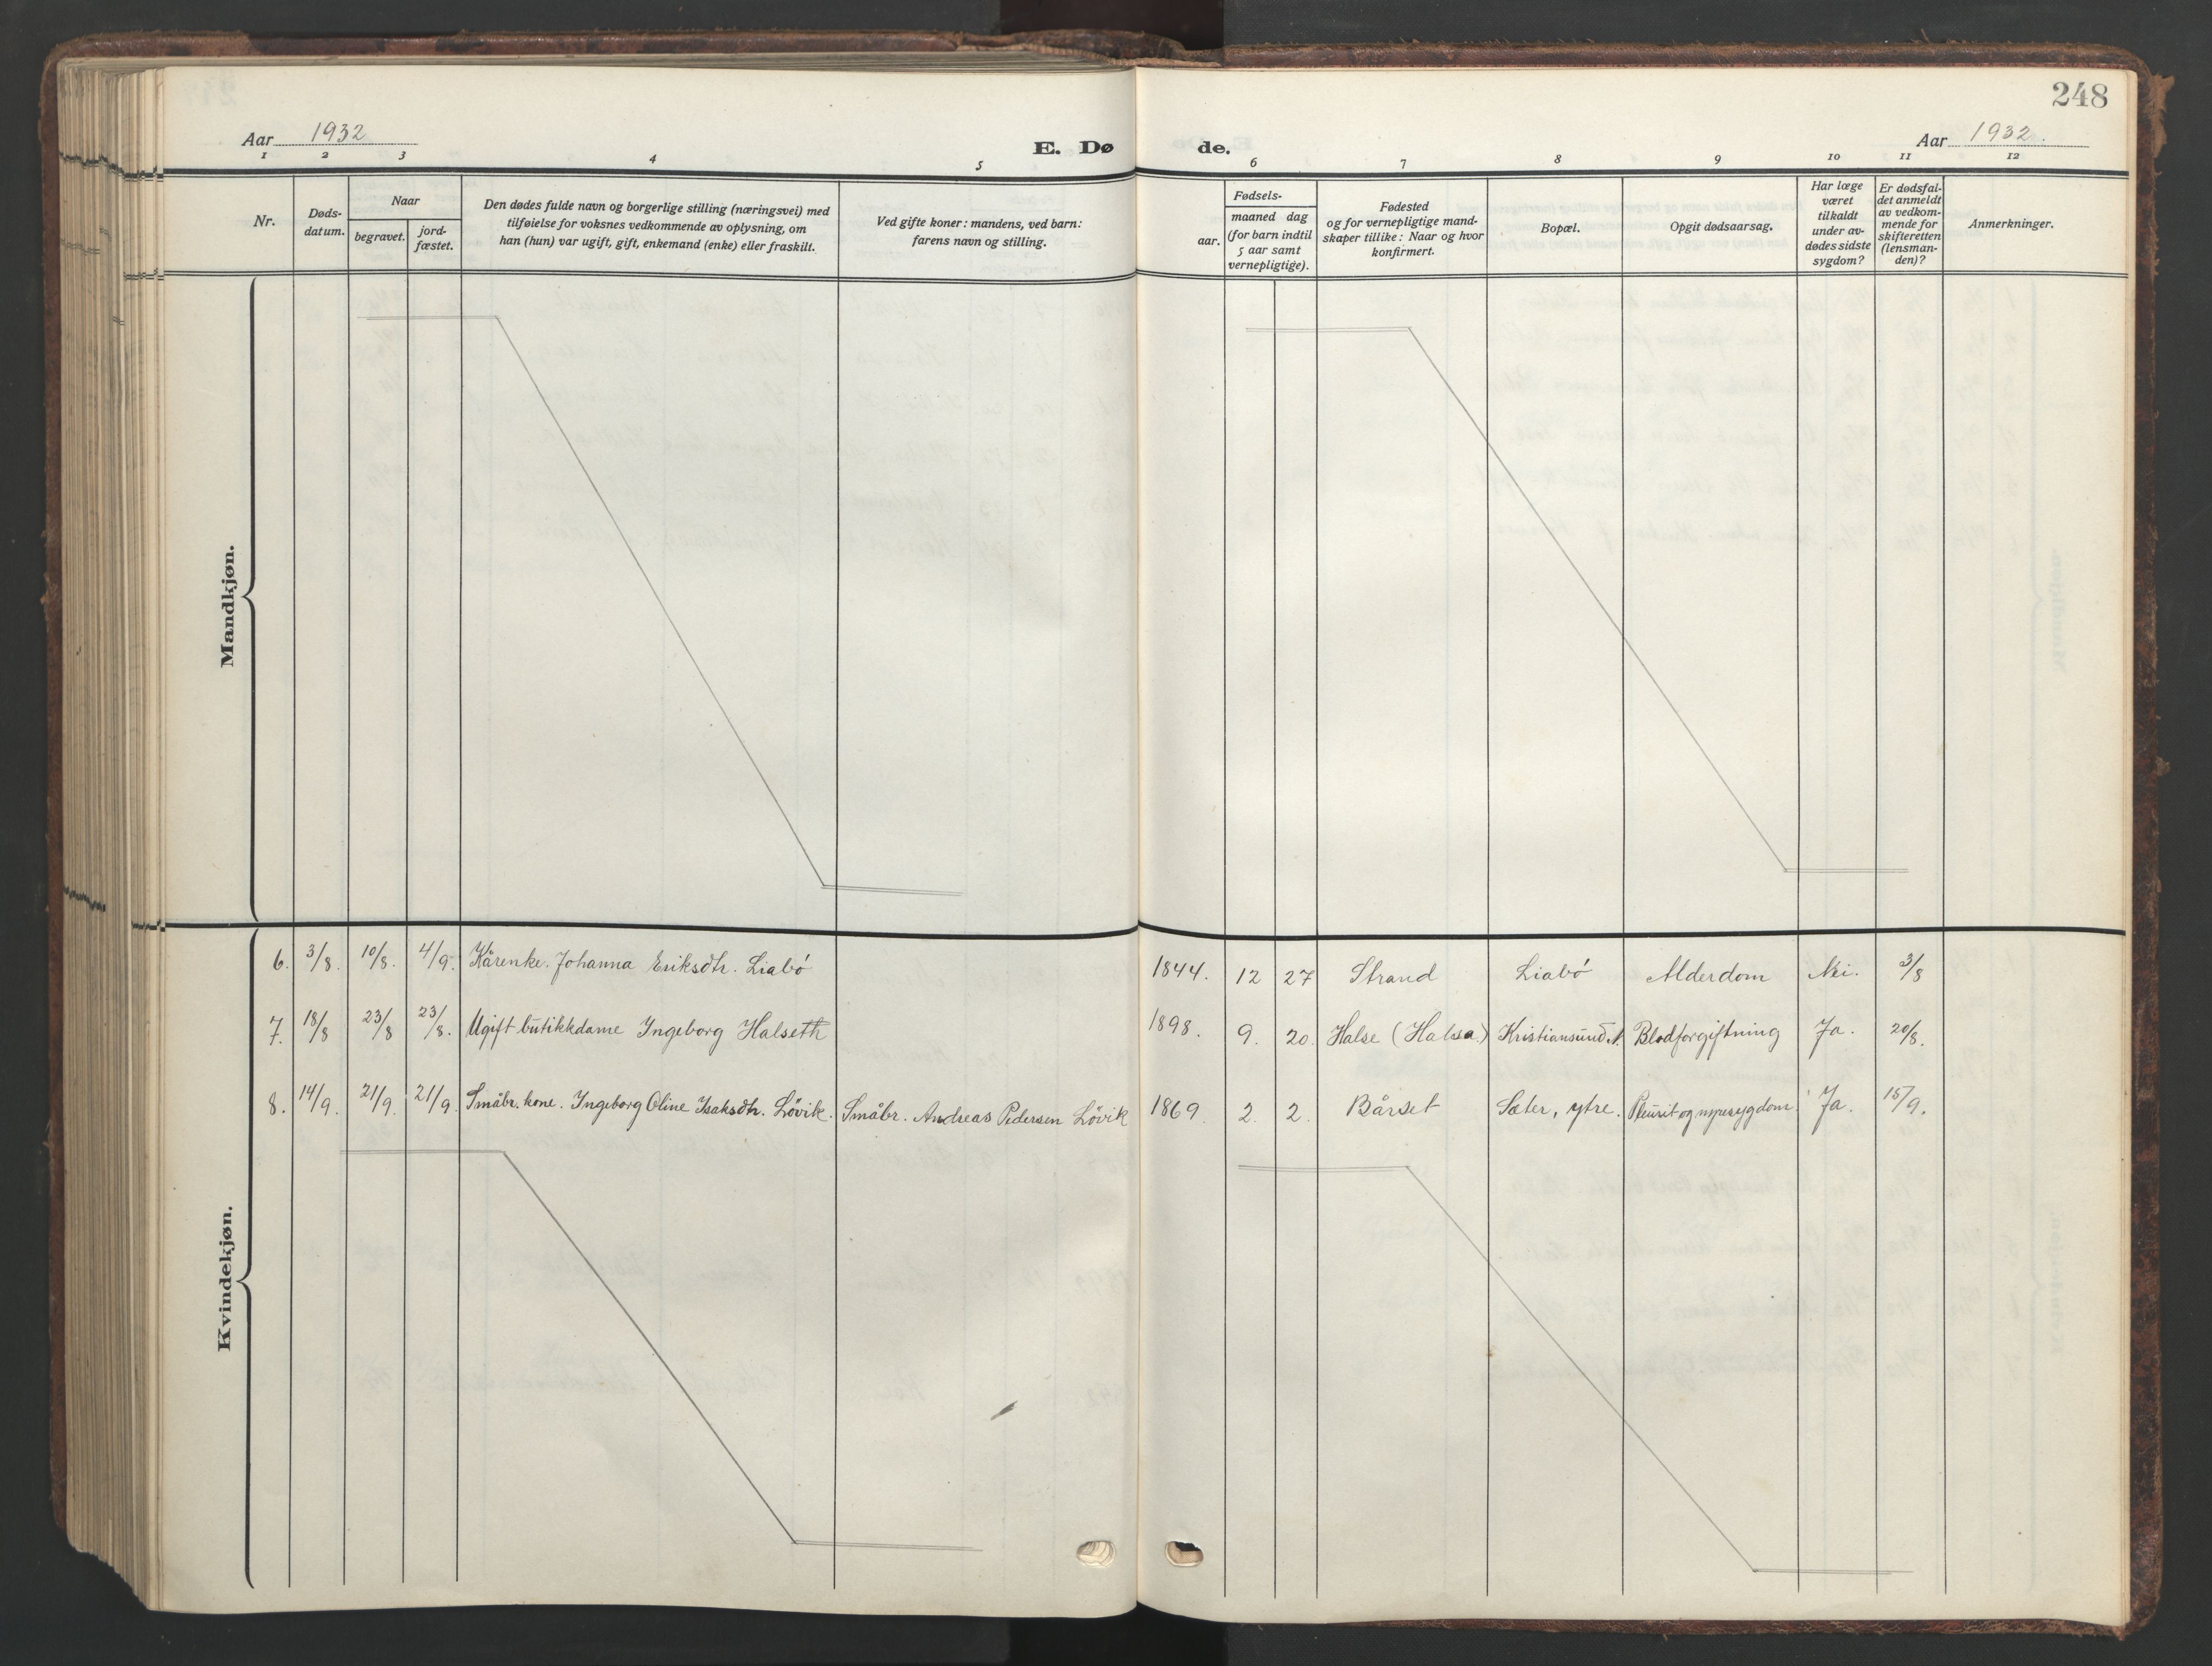 248
Aar 1932
E. Dø de.
Aar 1932.
1 2 3 4 5 6 7 8 9 10 11 12
Nr.
Døds-
datum.
Naar
begravet.
jord-
fæstet.
Den dødes fulde navn og borgerlige stilling (næringsvei) med
tilføielse for voksnes vedkommende av oplysning, om
han (hun) var ugift, gift, enkemand (enke) eller fraskilt.
Ved gifte koner: mandens, ved barn:
farens navn og stilling.
Fødsels-
aar.
maaned dag
(for barn indtil
5 aar samt
vernepligtige).
Fødested
og for vernepligtige mand-
skaper tillike: Naar og hvor
konfirmert.
Bopæl.
Opgit dødsaarsag.
Har læge
været
tilkaldt
under av-
dødes sidste
sygdom?
Er dødsfal-
det anmeldt
av vedkom-
mende for
skifteretten
(lensman-
den)?
Anmerkninger.
Mandkjøn.
Kvindekjøn.
6. 3/8. 10/8. 4/9. Kårenke. Johanna Eriksdtr. Liabó 1844. 12 27 Strand Liabó Alderdom Nei. 3/8
7. 18/8 23/8 23/8. Ugift butikkdame Ingeborg Halseth 1898. 9. 20. Halse (Halsa) Kristiansund N. Blodforgiftning Ja. 20/8.
8. 14/9. 21/9. 21/9. Småbr. kone. Ingeborg Oline Isaksdtr. Lövik. Småbr. Andreas Pedersen Lövik 1869. 2. 2. Bårset Sæter, ytre. Pleurit og nyresygdom. Ja. 15/9.